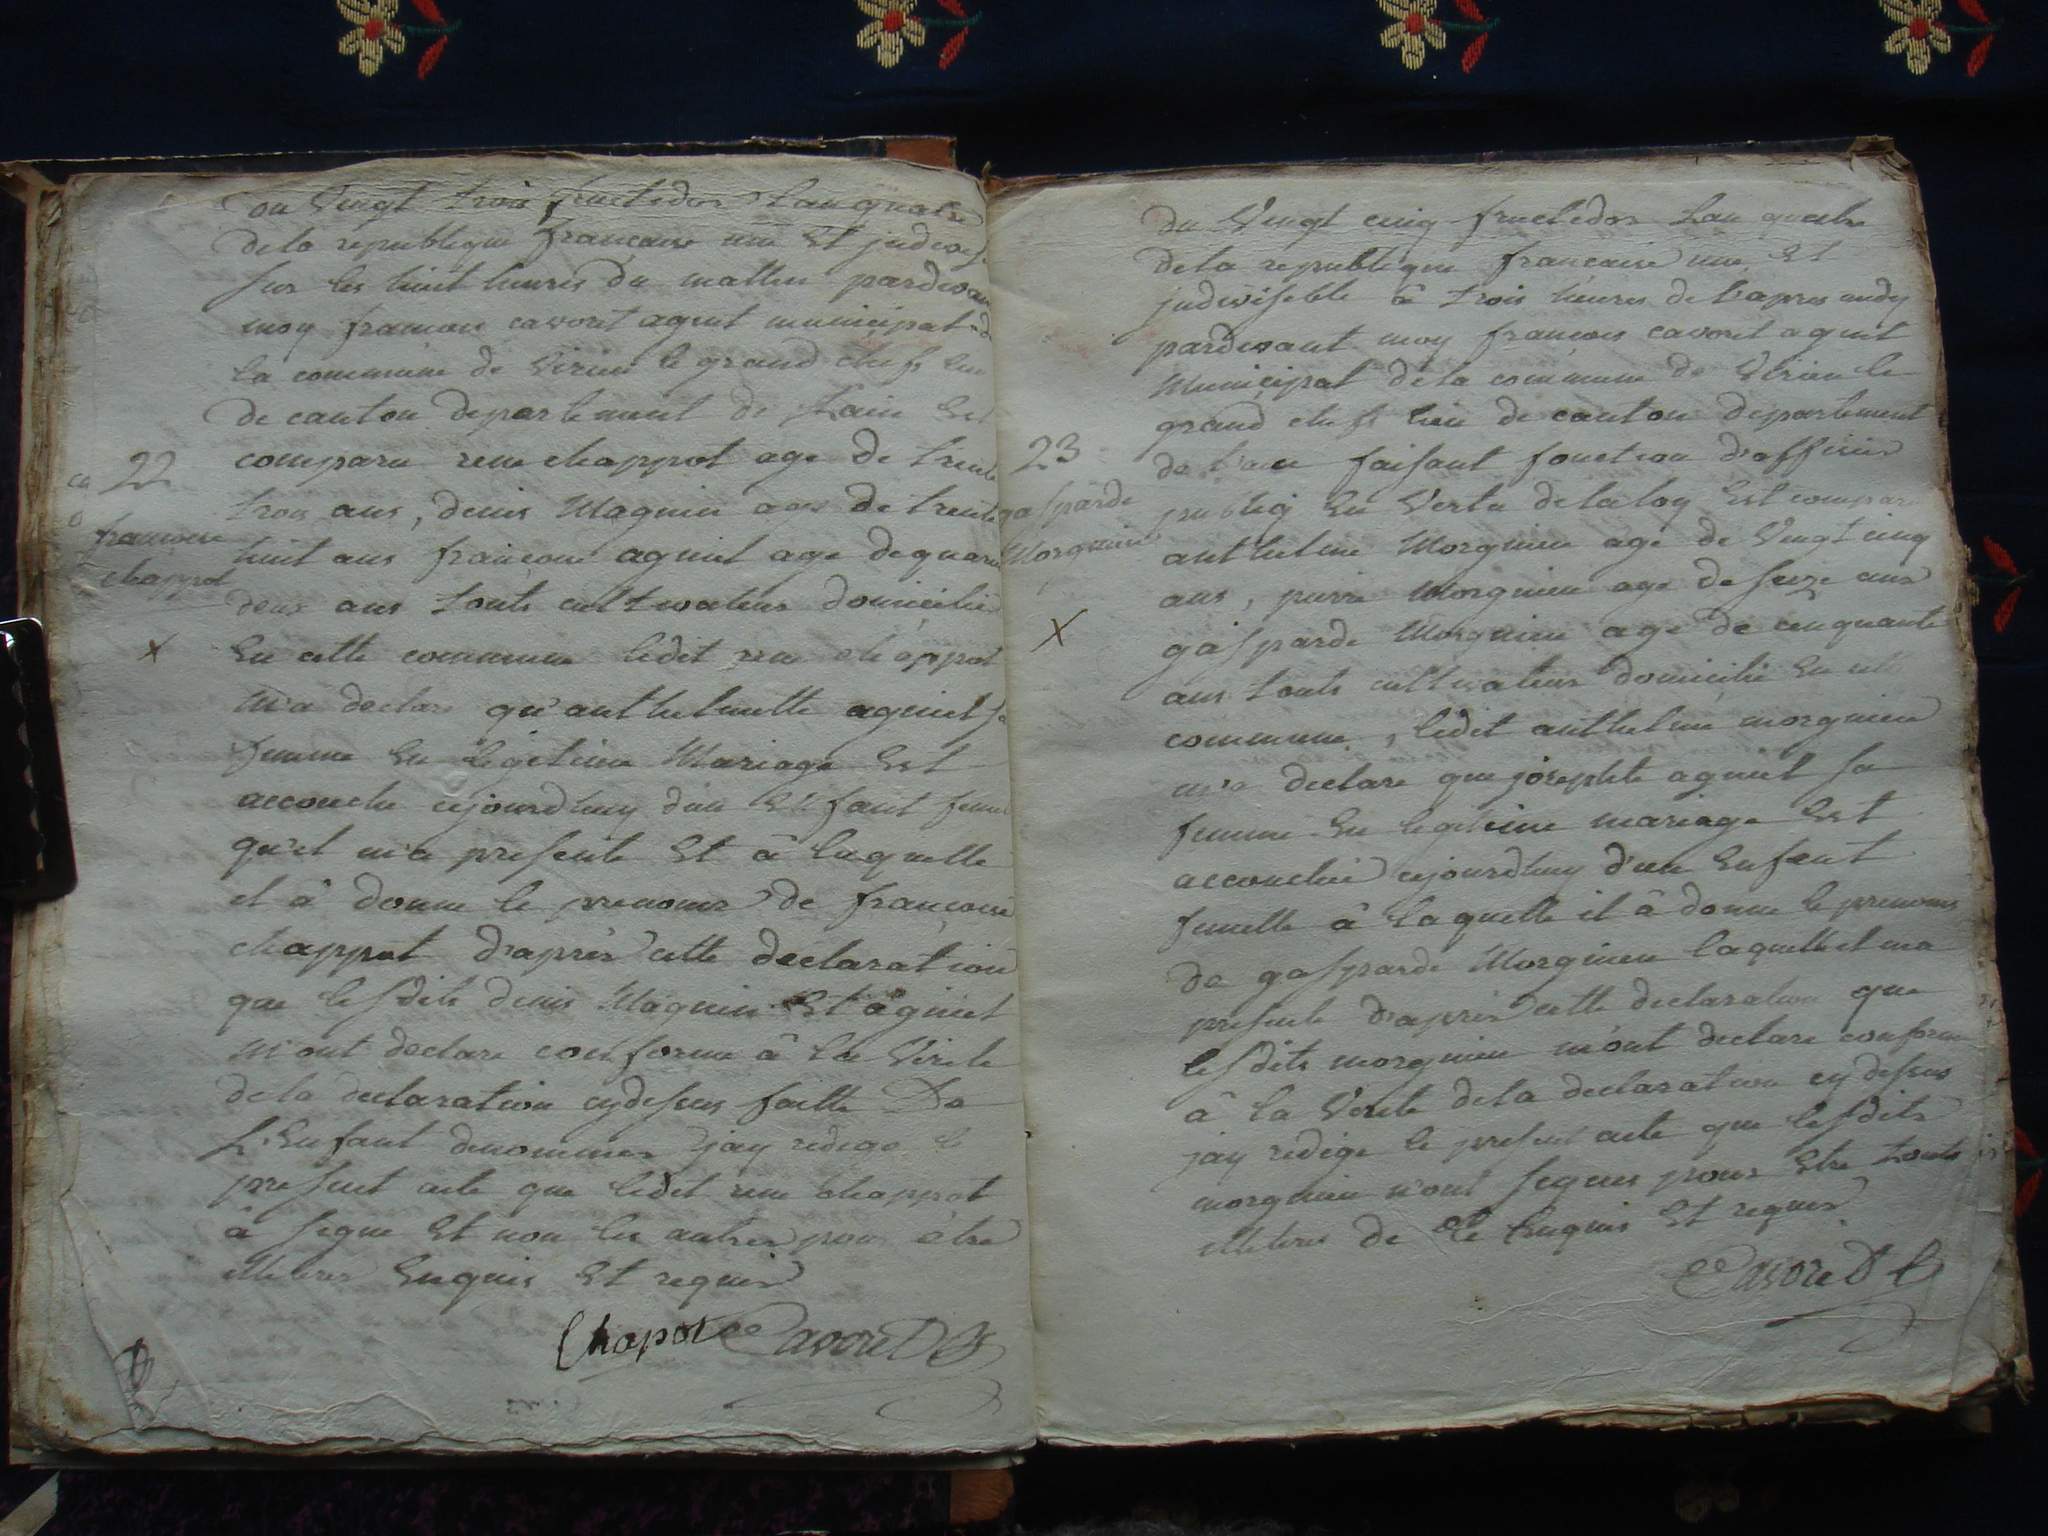 du Vingt trois fructidor Lan quatre
dela republique française une Et judivise
sur les huit heures du mattin pardevant
moy francois cavoret agent municipal de
la commune de Virieu le grand cheff lieu
de canton departement de Lain Est
comparu rene chappot age de trente
22
trois ans, denis Magnin age de trente
francoise
chappot
huit ans françois aguiet age de quarante
deux ans touts cultivateurs domicilie
X
En cette commune ledit rene chappot
m'a declare qu'anthelmette aguiet sa
femme En legetime Mariage Est
accouche cejourdhuy d'un Enfant femelle
qu'il m'a presente Et â laquelle
il â donne le prenoms de françoise
chappot d'après cette declaration
que lesdits denis Magnin Et aguiet
m'ont declare conforme â la Verite
dela declaration cydesus faitte De
L'Enfant denommes jay redige le
present acte que ledit rene chappot
â segne Et non les autres pour être
illetres Enquis Et requis
Chapot Cavoret
du Vingt cinq fructidor Lan quatre
dela republique francaise une Et
judiviseble â trois heures de l'apres midy
pardevant moy françois cavoret agent
Municipal dela commune de Virieu le
grand cheff lieu de canton departement
de l'ain faisant fonction d'afficier
23
publiq En Vertu de la loy Est comparu
gasparde
Morgnieu
anthelme Morgnieu age de Vingt cinq
ans, pierre Morgnieu age de seize ans
X
gasparde Morgnieu age de cinquante
ans touts cultivateurs domicilie En cette
commune, ledit anthelme morgnieu
m'a declare que josephte aguiet sa
femme En legetime mariage Est
accouchée cejourdhuy d'un Enfant
femelle â laquelle il â donne le prenoms
de gasparde Morgnieu laquelle il ma
presente d'apres cette declaration que
lesdits morgnieu m'ont declare conforme
â la Verite dela declaration cy desus
jay redige le present acte que lesdits
morgnieu n'ont segnes pour Etre touts
illetres de ce Enquis Et requis
Cavoret